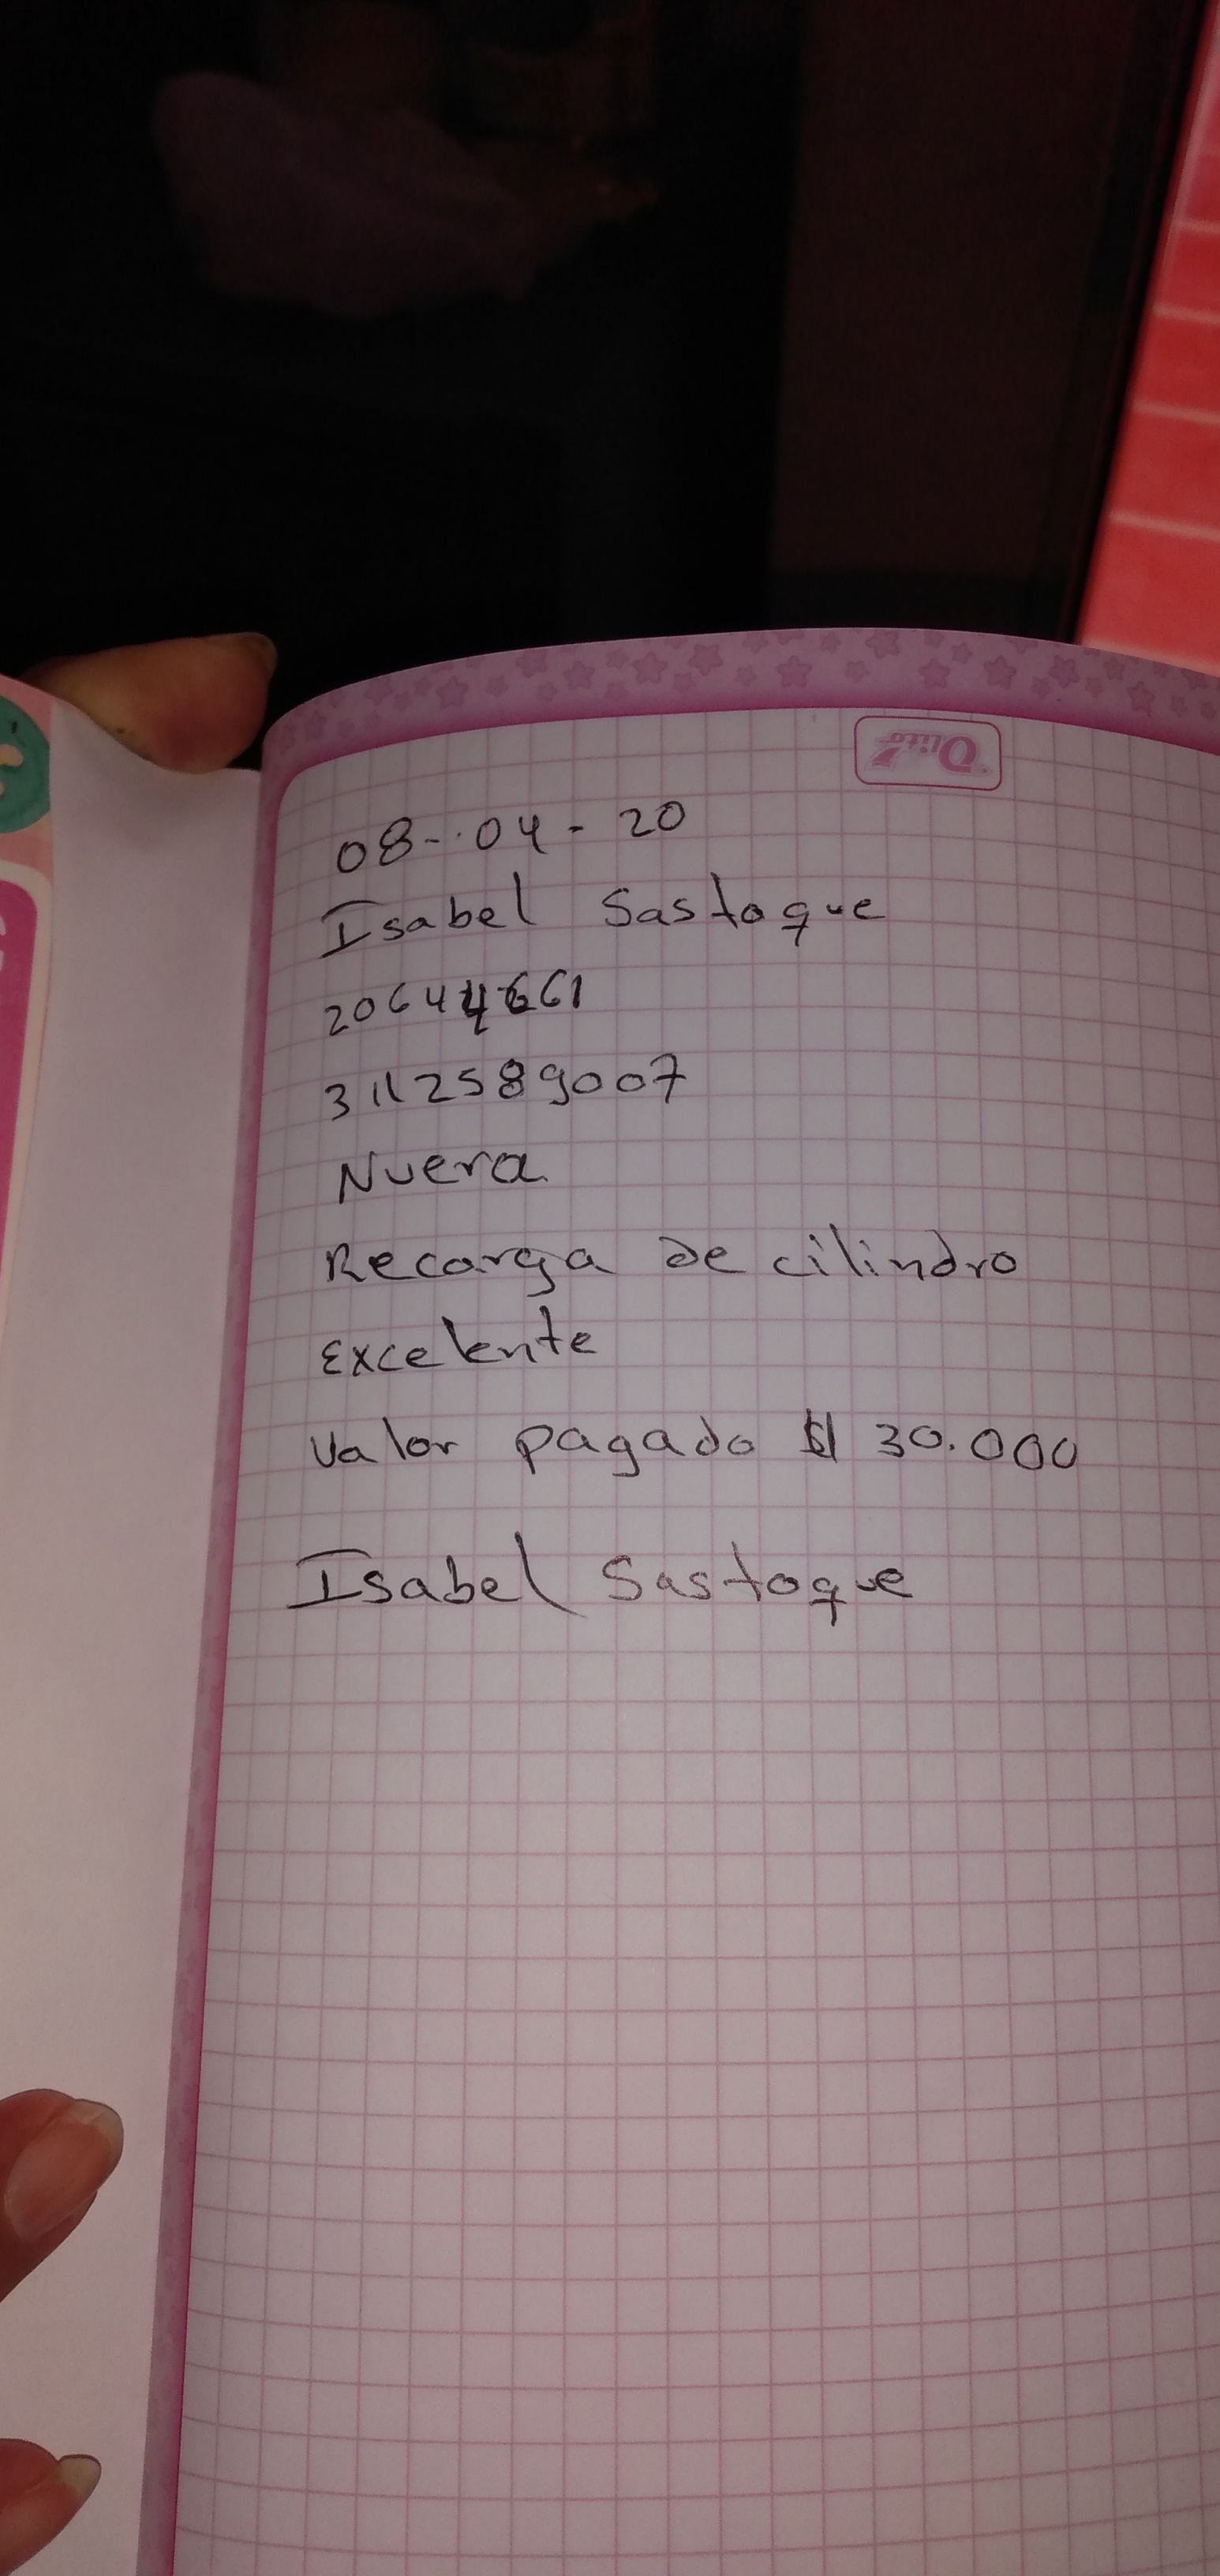 Olito
08-04-20
Isabel Sastoque
20644661
3112589007
Nuera
Recarga de cilindro
Excelente
Valor pagado $ 30.000
Isabel Sastoque